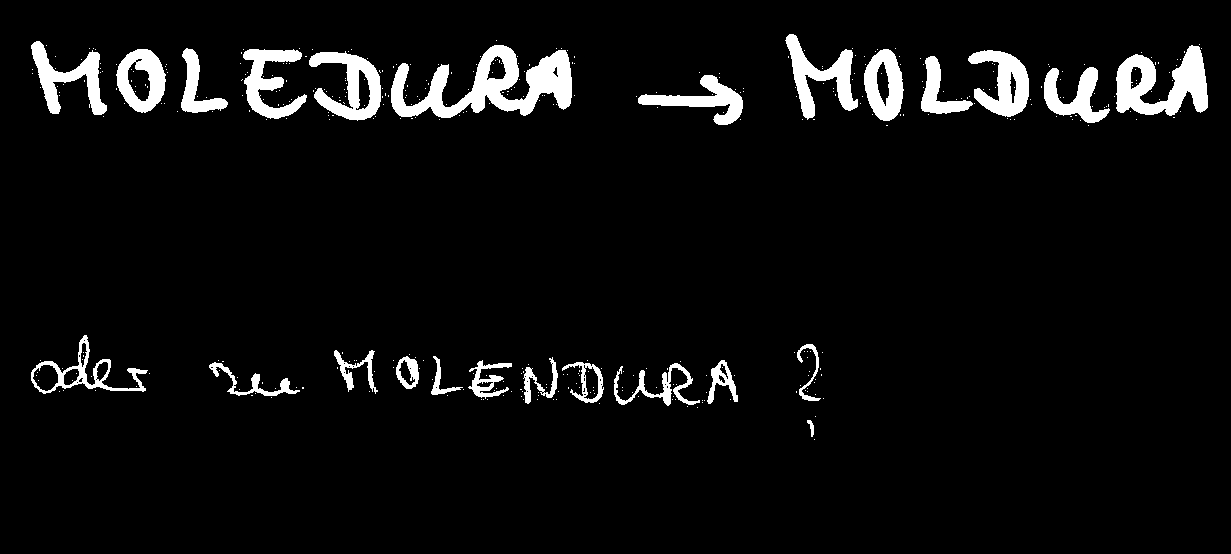 MOLEDURA → MOLDURA
oder zu MOLENDURA ?